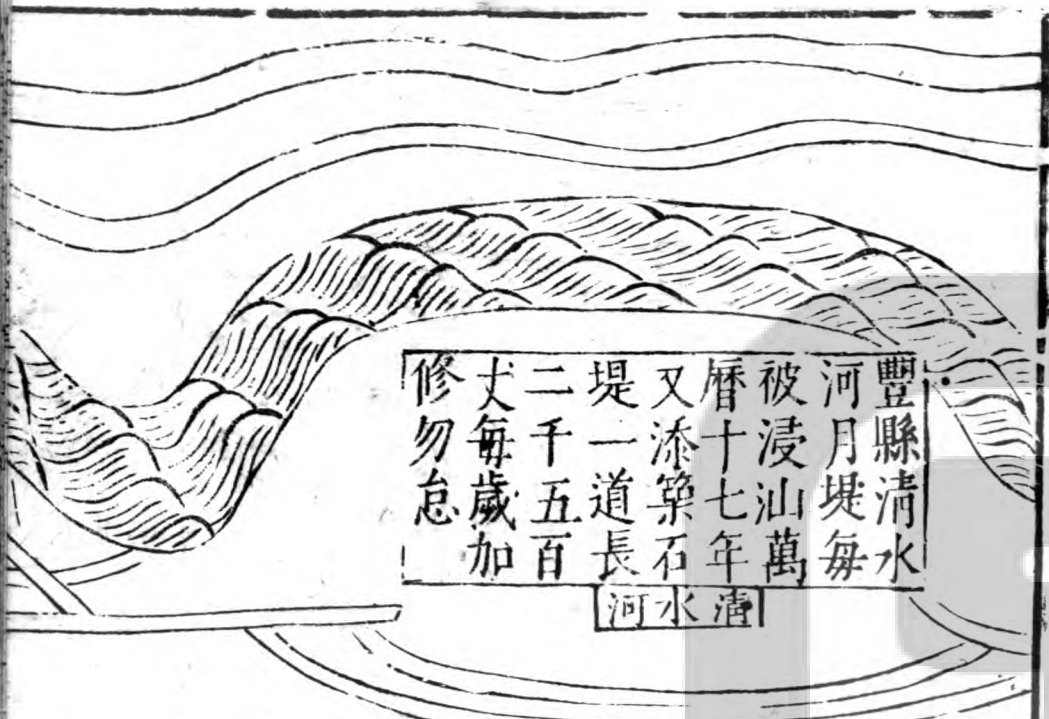 豐縣淸水
河月堤每
被浸汕萬
曆十七年
又添築石
堤一道長
二千五百
丈每歲加
修勿怠
淸水河